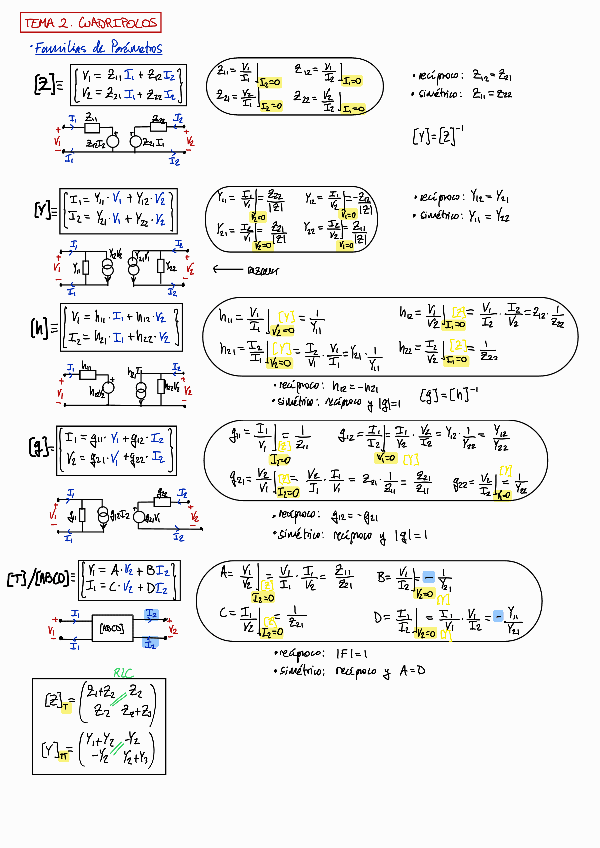 TEMA 2. CUADRIPOLOS
· Familias de Parámetros
[Z]≡ { V₁ = Z₁₁ I₁ + Z₁₂ I₂
V₂ = Z₂₁ I₁ + Z₂₂ I₂ }
Z₁₁ = V₁/I₁ | I₂=0 Z₁₂ = V₁/I₂ | I₁=0
Z₂₁ = V₂/I₁ | I₂=0 Z₂₂ = V₂/I₂ | I₁=0
• recíproco: Z₁₂ = Z₂₁
• simétrico: Z₁₁ = Z₂₂
[Y] = [Z]⁻¹
I₁ Z₁₁ Z₂₂ I₂
+ V₁ - Z₁₂I₂ Z₂₁I₁ + V₂ -
I₁ I₂
[Y]≡ { I₁ = Y₁₁·V₁ + Y₁₂·V₂
I₂ = Y₂₁·V₁ + Y₂₂·V₂ }
Y₁₁ = I₁/V₁ | V₂=0 = Z₂₂/|Z| Y₁₂ = I₁/V₂ | V₁=0 = -Z₁₂/|Z|
Y₂₁ = I₂/V₁ | V₂=0 = Z₂₁/|Z| Y₂₂ = I₂/V₂ | V₁=0 = Z₁₁/|Z|
• recíproco: Y₁₂ = Y₂₁
• simétrico: Y₁₁ = Y₂₂
I₁ I₂
+ V₁ - Y₁₁ Y₁₂V₂ Y₂₁V₁ Y₂₂ + V₂ -
I₁ I₂
←
[h]≡ { V₁ = h₁₁·I₁ + h₁₂·V₂
I₂ = h₂₁·I₁ + h₂₂·V₂ }
h₁₁ = V₁/I₁ | V₂=0 [Y] = 1/Y₁₁ h₁₂ = V₁/V₂ | I₁=0 [Z] = V₁/I₂ · I₂/V₂ = Z₁₂·1/Z₂₂
h₂₁ = I₂/I₁ | V₂=0 [Y] = I₂/V₁ · V₁/I₁ = Y₂₁·1/Y₁₁ h₂₂ = I₂/V₂ | I₁=0 [Z] = 1/Z₂₂
• recíproco: h₁₂ = -h₂₁
• simétrico: recíproco y |g|=1 [g] = [h]⁻¹
I₁ h₁₁ h₂₁I₁ I₂
+ V₁ - h₁₂V₂ h₂₂V₂ + V₂ -
I₁ I₂
[g]≡ { I₁ = g₁₁·V₁ + g₁₂·I₂
V₂ = g₂₁·V₁ + g₂₂·I₂ }
g₁₁ = I₁/V₁ | I₂=0 [Z] = 1/Z₁₁ g₁₂ = I₁/I₂ | V₁=0 [Y] = I₁/V₂ · V₂/I₂ = Y₁₂·1/Y₂₂ = Y₁₂/Y₂₂
g₂₁ = V₂/V₁ | I₂=0 [Z] = V₂/I₁ · I₁/V₁ = Z₂₁·1/Z₁₁ = Z₂₁/Z₁₁ g₂₂ = V₂/I₂ | V₁=0 [Y] = 1/Y₂₂
• recíproco: g₁₂ = -g₂₁
• simétrico: recíproco y |g|=1
I₁ g₂₂ I₂
+ V₁ - g₁₁ g₁₂I₂ g₂₁V₁ + V₂ -
I₁ I₂
[T]/[ABCD]≡ { V₁ = A·V₂ + B I₂
I₁ = C·V₂ + D I₂ }
A = V₁/V₂ | I₂=0 [Z] = V₁/I₁ · I₁/V₂ = Z₁₁/Z₂₁ B = V₁/I₂ | V₂=0 [Y] = - 1/Y₂₁
C = I₁/V₂ | I₂=0 [Z] = 1/Z₂₁ D = I₁/I₂ | V₂=0 [Y] = I₁/V₁ · V₁/I₂ = - Y₁₁/Y₂₁
I₁ I₂
+ V₁ - [ABCD] + V₂ -
I₁ I₂
• recíproco: |F|=1
• simétrico: recíproco y A=D
RLC
[Z]T = ( Z₁+Z₂ Z₂
Z₂ Z₂+Z₃ )
[Y]π = ( Y₁+Y₂ -Y₂
-Y₂ Y₂+Y₃ )